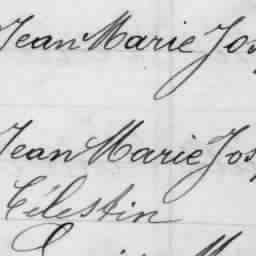 Jean Marie Jos
Jean Marie Jos
Célestin